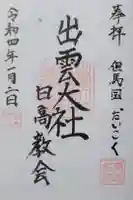 奉拝
但馬国
だいこく
出雲大社
日高教会
令和四年一月二日